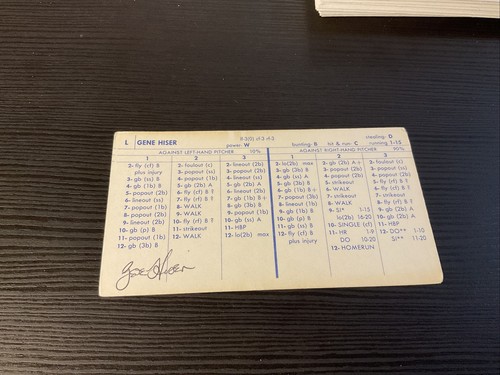 L GENE HISER
stealing- D
power- W bunting- B hit & run- C running 1-15
AGAINST LEFT-HAND PITCHER 10% AGAINST RIGHT-HAND PITCHER 90%
1 2 3 1 2 3
2- fly (cf) B
plus injury
3- gb (ss) B
4- gb (1b) B
5- popout (2b)
6- lineout (ss)
7- popout (1b)
8- popout (2b)
9- lineout (2b)
10- gb (p) B
11- popout (1b)
12- gb (3b) B
2- foulout (c)
3- popout (1b)
4- popout (ss)
5- gb (2b) A
6- fly (cf) B
7- fly (rf) B
8- WALK
9- WALK
10- fly (lf) B
11- strikeout
12- WALK
2- lineout (2b)
3- popout (2b)
4- lineout (ss)
5- gb (ss) A
6- gb (1b) B
7- gb (2b) B
8- gb (3b) B
9- popout (1b)
10- gb (ss) A
11- HBP
12- lo(2b) max
2- lo(2b) max
3- gb (3b) B
4- gb (ss) B
5- gb (2b) A
6- gb (1b) B
7- gb (2b) B
8- gb (3b) B
9- gb (1b) B
10- gb (p) B
11- foulout (c)
12- fly (cf) B
plus injury
2- gb (2b) A
3- popout (2b)
4- popout (ss)
5- strikeout
6- WALK
7- WALK
8- WALK
9- SI* 1-15
lo(2b) 16-20
10- SINGLE (cf)
11- HR 1-9
DO 10-20
12- HOMERUN
2- foulout (c)
3- popout (c)
5- fly (cf) B
6- WALK
7- strikeout
8- fly (rf) B
9- gb (ss) A
10- gb (2b) A
11- HBP
12- DO** 1-10
SI** 11-20
Gene Hiser